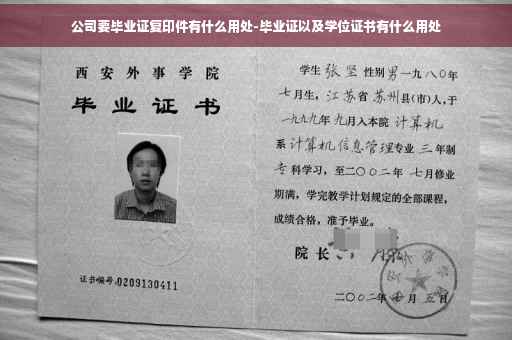 公司要毕业证复印件有什么用处-毕业证以及学位证书有什么用处
西安外事学院
毕业证书
证书编号:0209130411
学生张坚性别男一九八〇年
七月生，江苏省苏州县(市)人，于
一九九九年九月入本院计算机
系计算机信息管理专业三年制
专科学习，至二〇〇二年七月修业
期满，学完教学计划规定的全部课程，
成绩合格，准予毕业。
院长
二〇〇二年七月五日